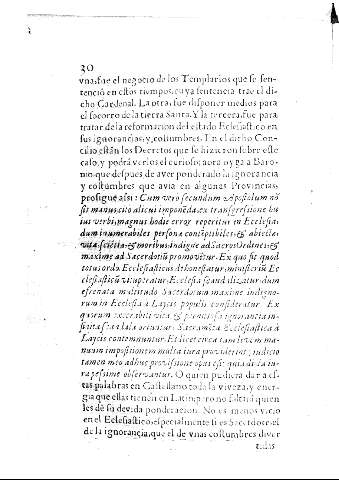 30
vna, fue el negocio de los Templarios que se sen-
tenciò en estos tiempos, cuya sentencia trae el di-
cho Cardenal. La otra, fue disponer medios para
el socorro de la tierra Santa. Y la tercera, fue para
tratar de la reformacion del estado Eclesiastico en
sus ignorancias, y costumbres. En el dicho Con-
cilio están los Decretos que se hizieron sobre este
caso, y podrá verlos el curioso; aora oyga a Baro-
nio, que despues de aver ponderado la ignorancia
y costumbres que avia en algunas Provincias,
prosigue asi: Cum vero secundum Apostolum nõ
sit manus cito alicui imponẽda, ex transgressione hu
ius verbi, magnus hodie error reperitur in Ecclesia:
dum innumerabiles persone contẽptibiles, & abiectæ
vita, sciẽtia, & moribus indigne ad Sacros Ordines, &
maxime ad Sacerdotiũ promovẽtur. Ex quo fit quod
totus ordo Ecclesiasticus dehonestatur, ministeriũ Ec
clesiasticũ vituperatur, Ecclesia scandalizatur dum
effrenata multitudo Sacerdotum maxime indigno-
rum in Ecclesia à Laycis populis consideratur. Ex
quorum execrabili vita & perniciosa ignorantia in-
finita scandala oriuntur. Sacramẽta Ecclesiastica à
Laycis contemnuntur. Et licet circa tam levem ma-
nuum impositionem multa iura provideant; iudicio
tamen meo adhuc provisione opus est; quia dicta iu-
ra pessime observantur. O quien pudiera dar a es-
tas palabras en Castellano toda la viveza, y ener-
gia que ellas tienen en Latin, pero no faltarà quien
les dè su devida ponderacion. No es menos vicio
en el Eclesiastico, especialmente si es Sacerdote, el
de la ignorancia, que el de vnas costumbres diver